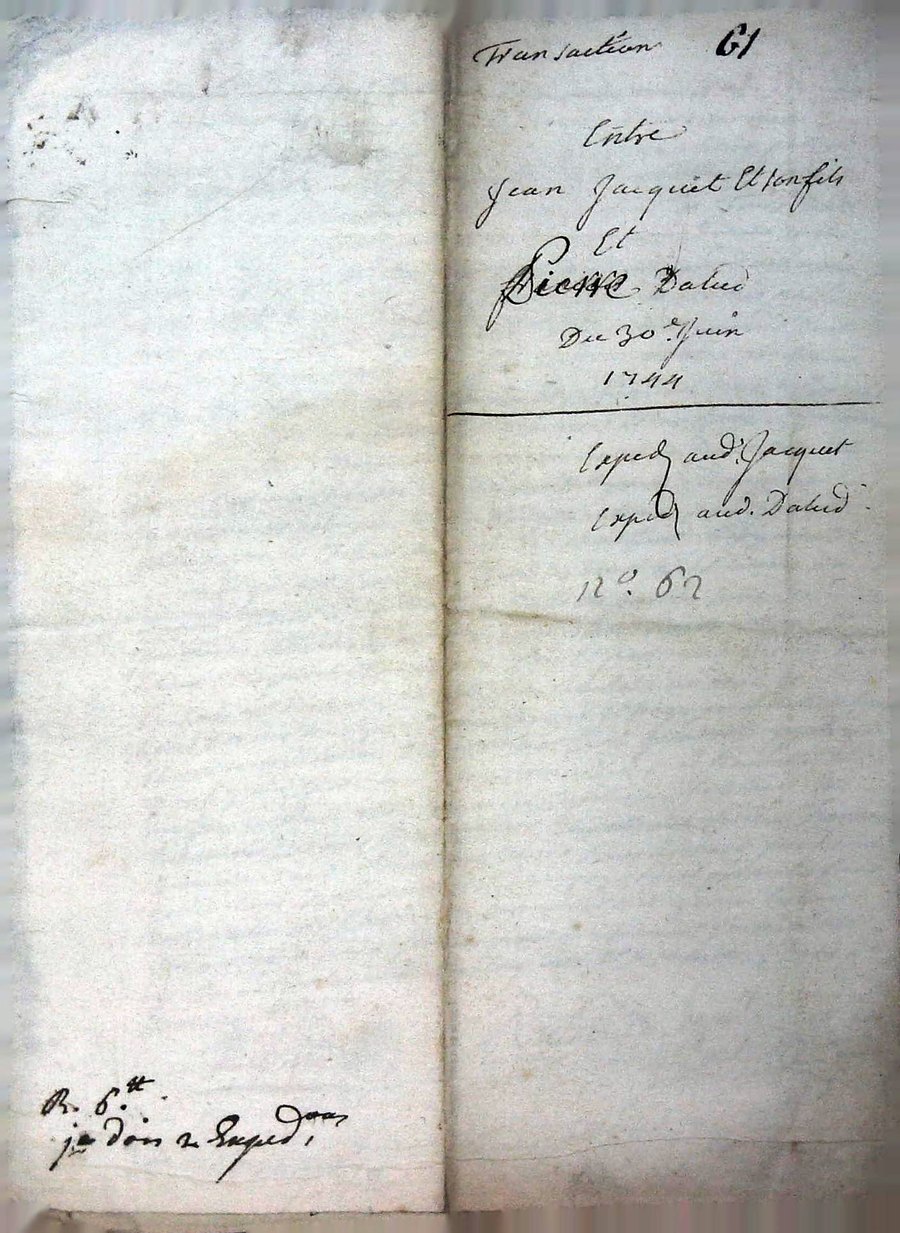 Transaction 61
Entre
Jean Jacquet Et son fils
Et
Pierre Dalud
Du 30e. Juin
1744
Exped aud. Jacquet
Exped aud. Dalud
n°. 62
R. 6.tt
je dois 2 Exped.ons